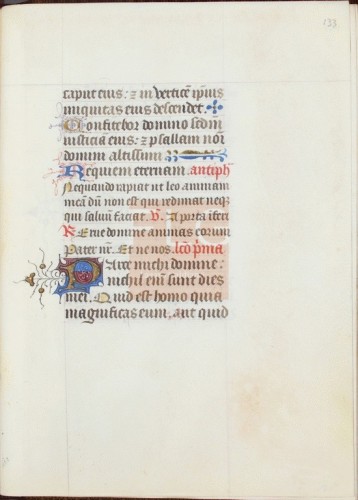 133
caput eius: ⁊ in verticē ip̄ius
iniquitas eius descendet.
Confitebor domino scd̄m
iusticiā eius: ⁊ psallam nōi
domini altissimi
Requiem eternam. antiph̄
Nequando rapiat ut leo animam
meā dū non est qui redimat neqꝫ
qui saluū faciat. V̄. A porta iferi
R Erue domine animas eorum
Pater nr̄. Et ne nos. lc̄o p̄ma
Parce michi domine:
nichil enī sunt dies
mei. Quid est homo quia
magnificas eum, aut quid